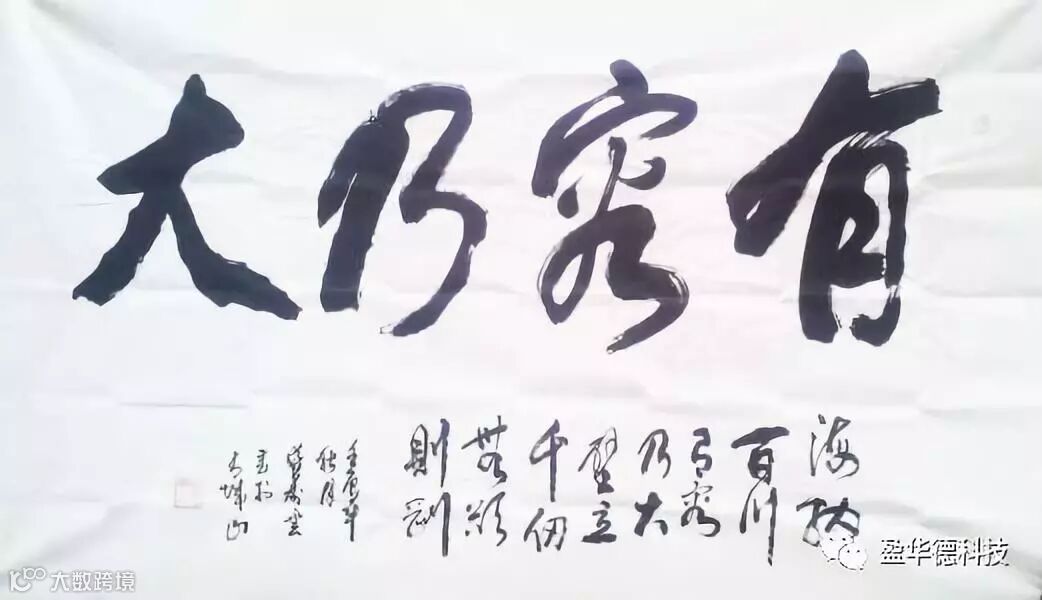 有容乃大
海納
百川
有容
乃大
壁立
千仞
無欲
則剛
壬辰年
秋月
大城山
盈华德科技
大数跨境